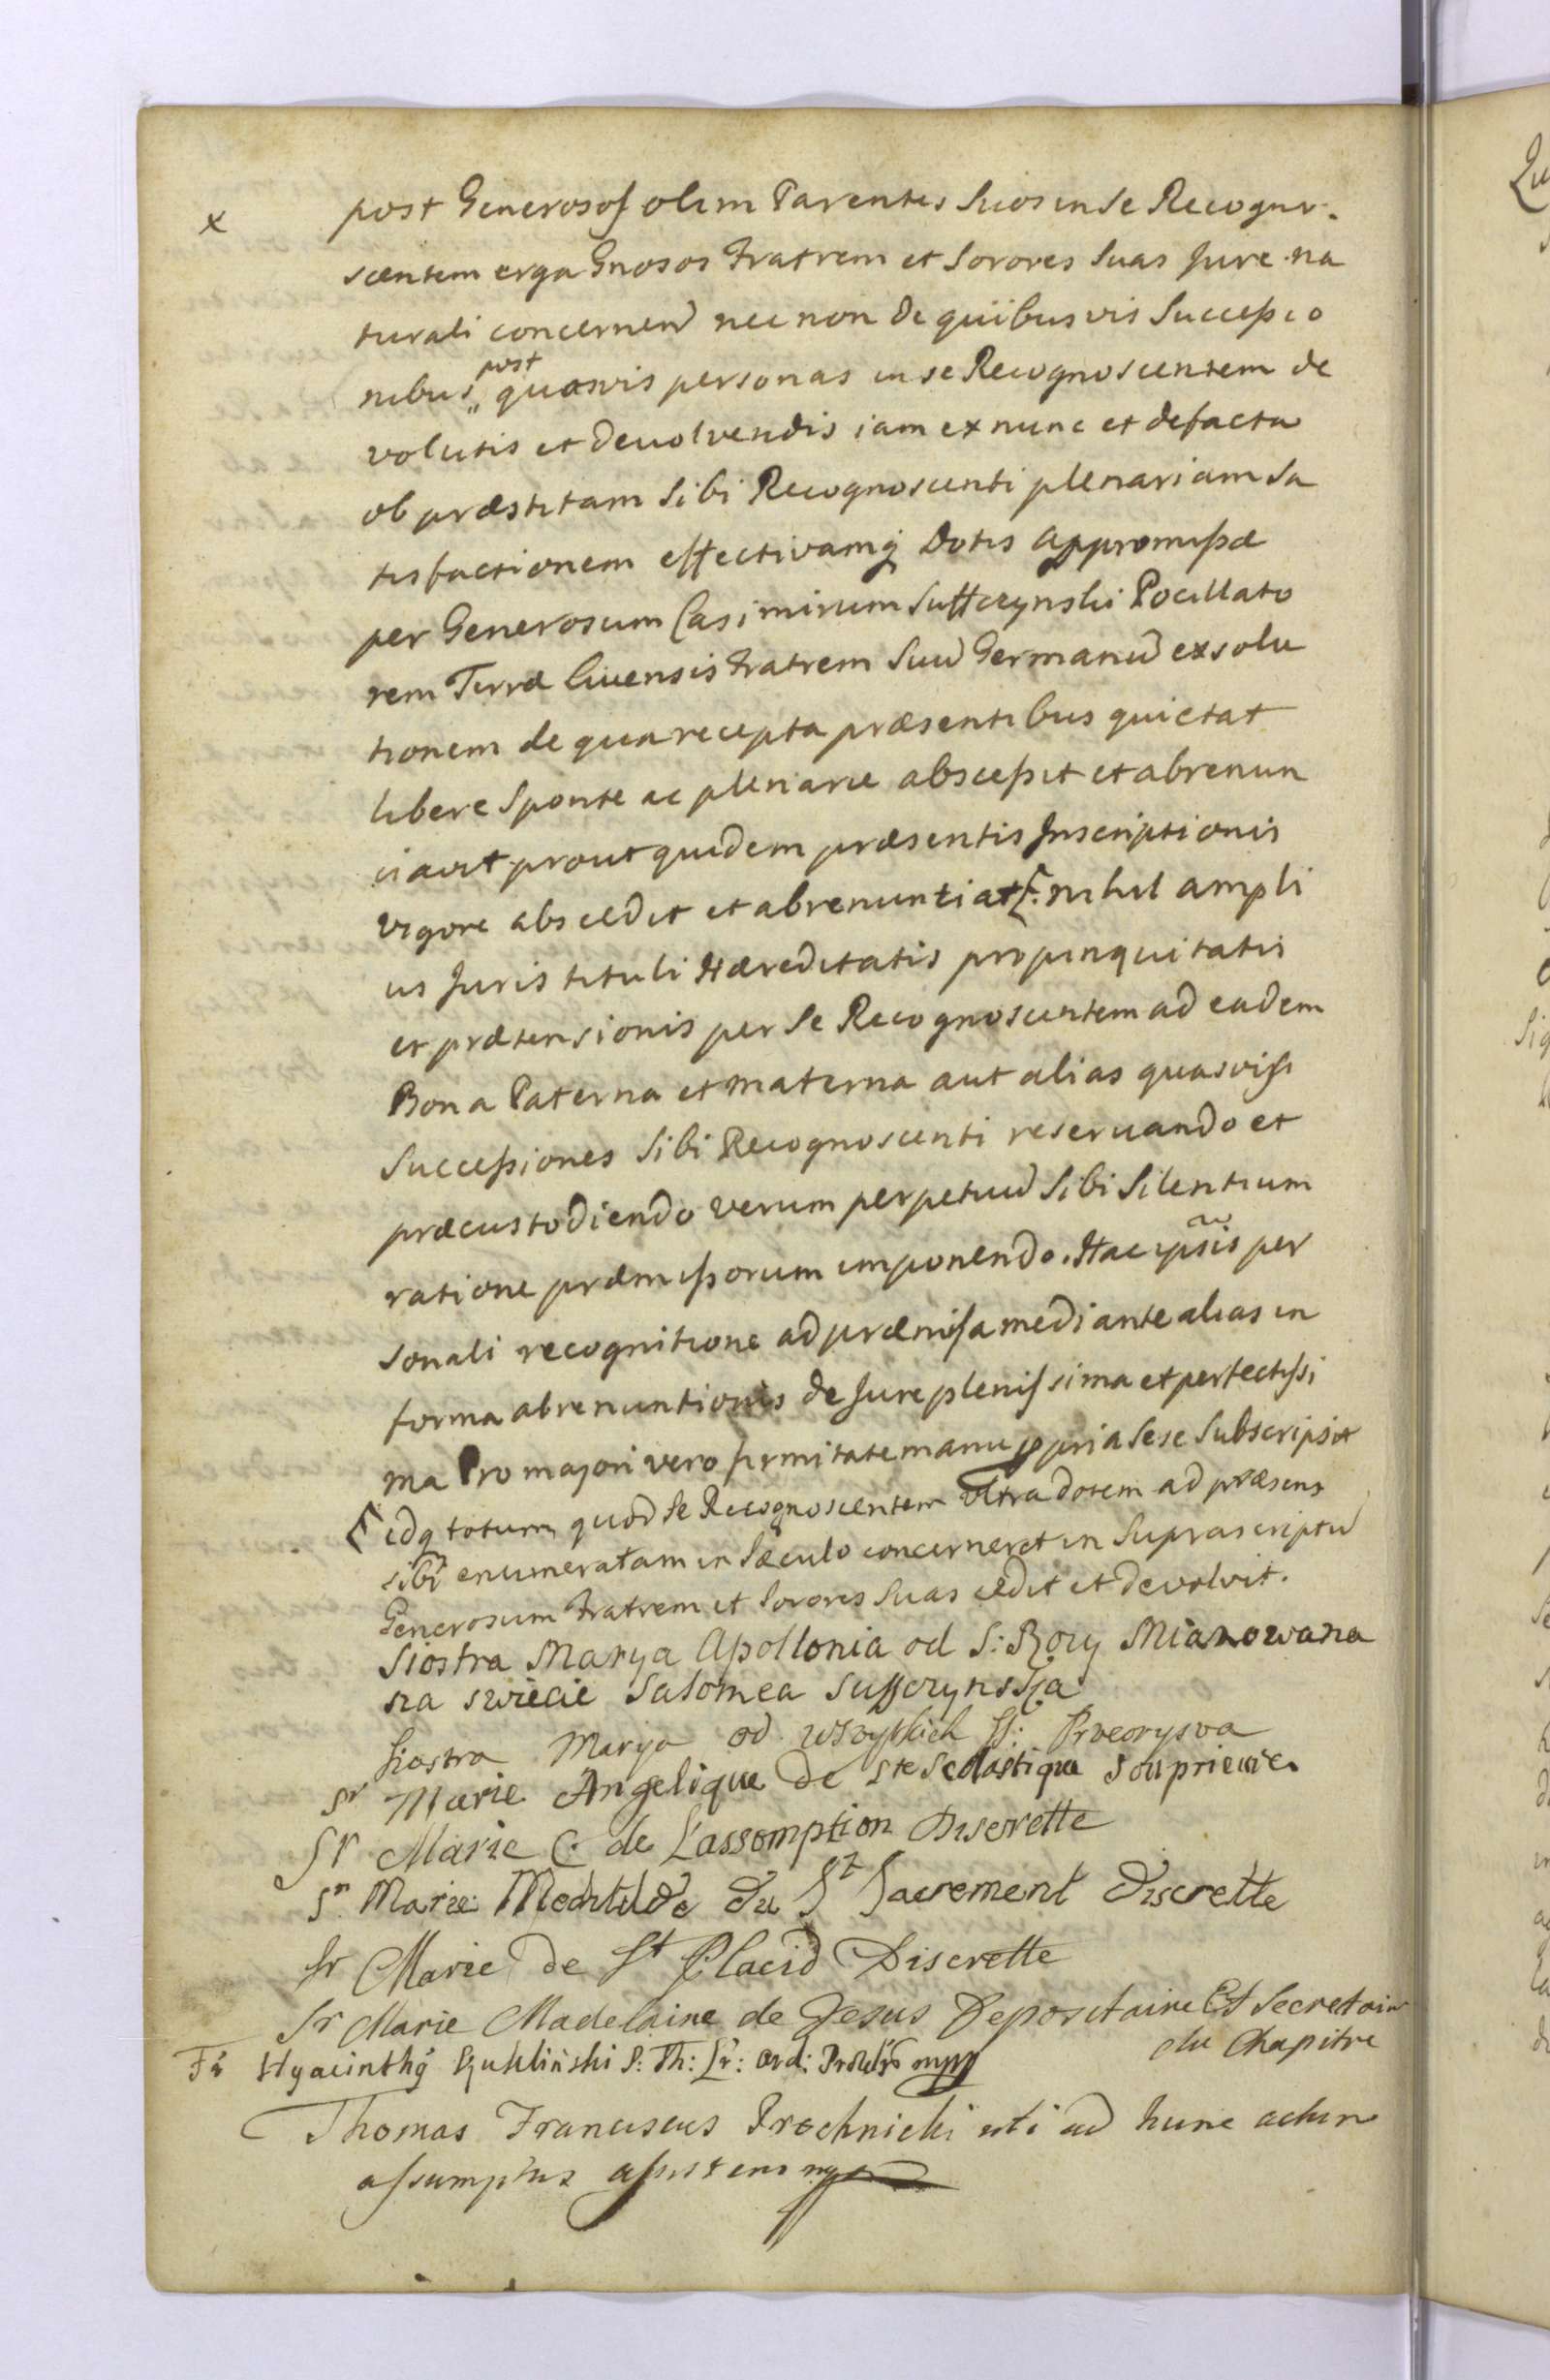 x post Generosos olim Parentes Suos in Se Recogno-
scentem erga Gnosos Fratrem et Sorores Suas Jure na
turali concernen nec non de quibusvis Successio
nibus post quasvis personas in se Recognoscentem de
volutis et devolvendis iam ex nunc et defacto
ob præstitam Sibi Recognoscenti plenariam Sa
tisfactionem effectivamq Dotis appromissæ
per Generosum Casimirum Suffczynski Pocillato
rem Terræ Livensis Fratrem Suū Germanū exsolu
tionem de qua recepta præsentibus quietat
libere Sponte ac plenarie abscessit et abrenun
ciavit prout quidem præsentis Inscriptionis
vigore abscedit et abrenuntiat [: nihil ampli
us Juris tituli Hæreditatis propinquitatis
et prætensionis per Se Recognoscentem ad eadem
Bona Paterna et Materna aut alias quasvis
Successiones Sibi Recognoscenti reservando et
præcustodiendo verum perpetuū Sibi Silentium
ratione præmissorum imponendo. Hac ipsis per
sonali recognitione ad præmissa mediante alias in
forma abrenuntionis de Jure plenissima et perfectissi
ma Pro majori vero firmitate manu ppria Sese Subscripsit
[ idq totum quod Se Recognoscentem Ultra dotem ad præsens
sibi enumeratam in Sæculo concerneret in Suprascriptū
Generosum Fratrem et Sorores Suas cedit et devolvit.
Siostra Marya Apollonia od S: Rozy Mianowana
na swiecie Salomea Suffczynska
Siostra Marya od wszystkich SS: Przeorysza
Sr Marie Angelique de Ste Scolastique Souprieure
Sr Marie C. de L'assomption Discrette
Sr Marie Mechtilde du St Sacrement Discrette
Sr Marie de St Placid Discrette
Sr Marie Madelaine de Jesus Depositaire Et Secretair
du Chapitre
Fr Hyacinthÿ S: Th: Lr: Ord: mpp
Thomas Franciscus Prochnicki uti ad hunc actum
assumptus assistens mpp